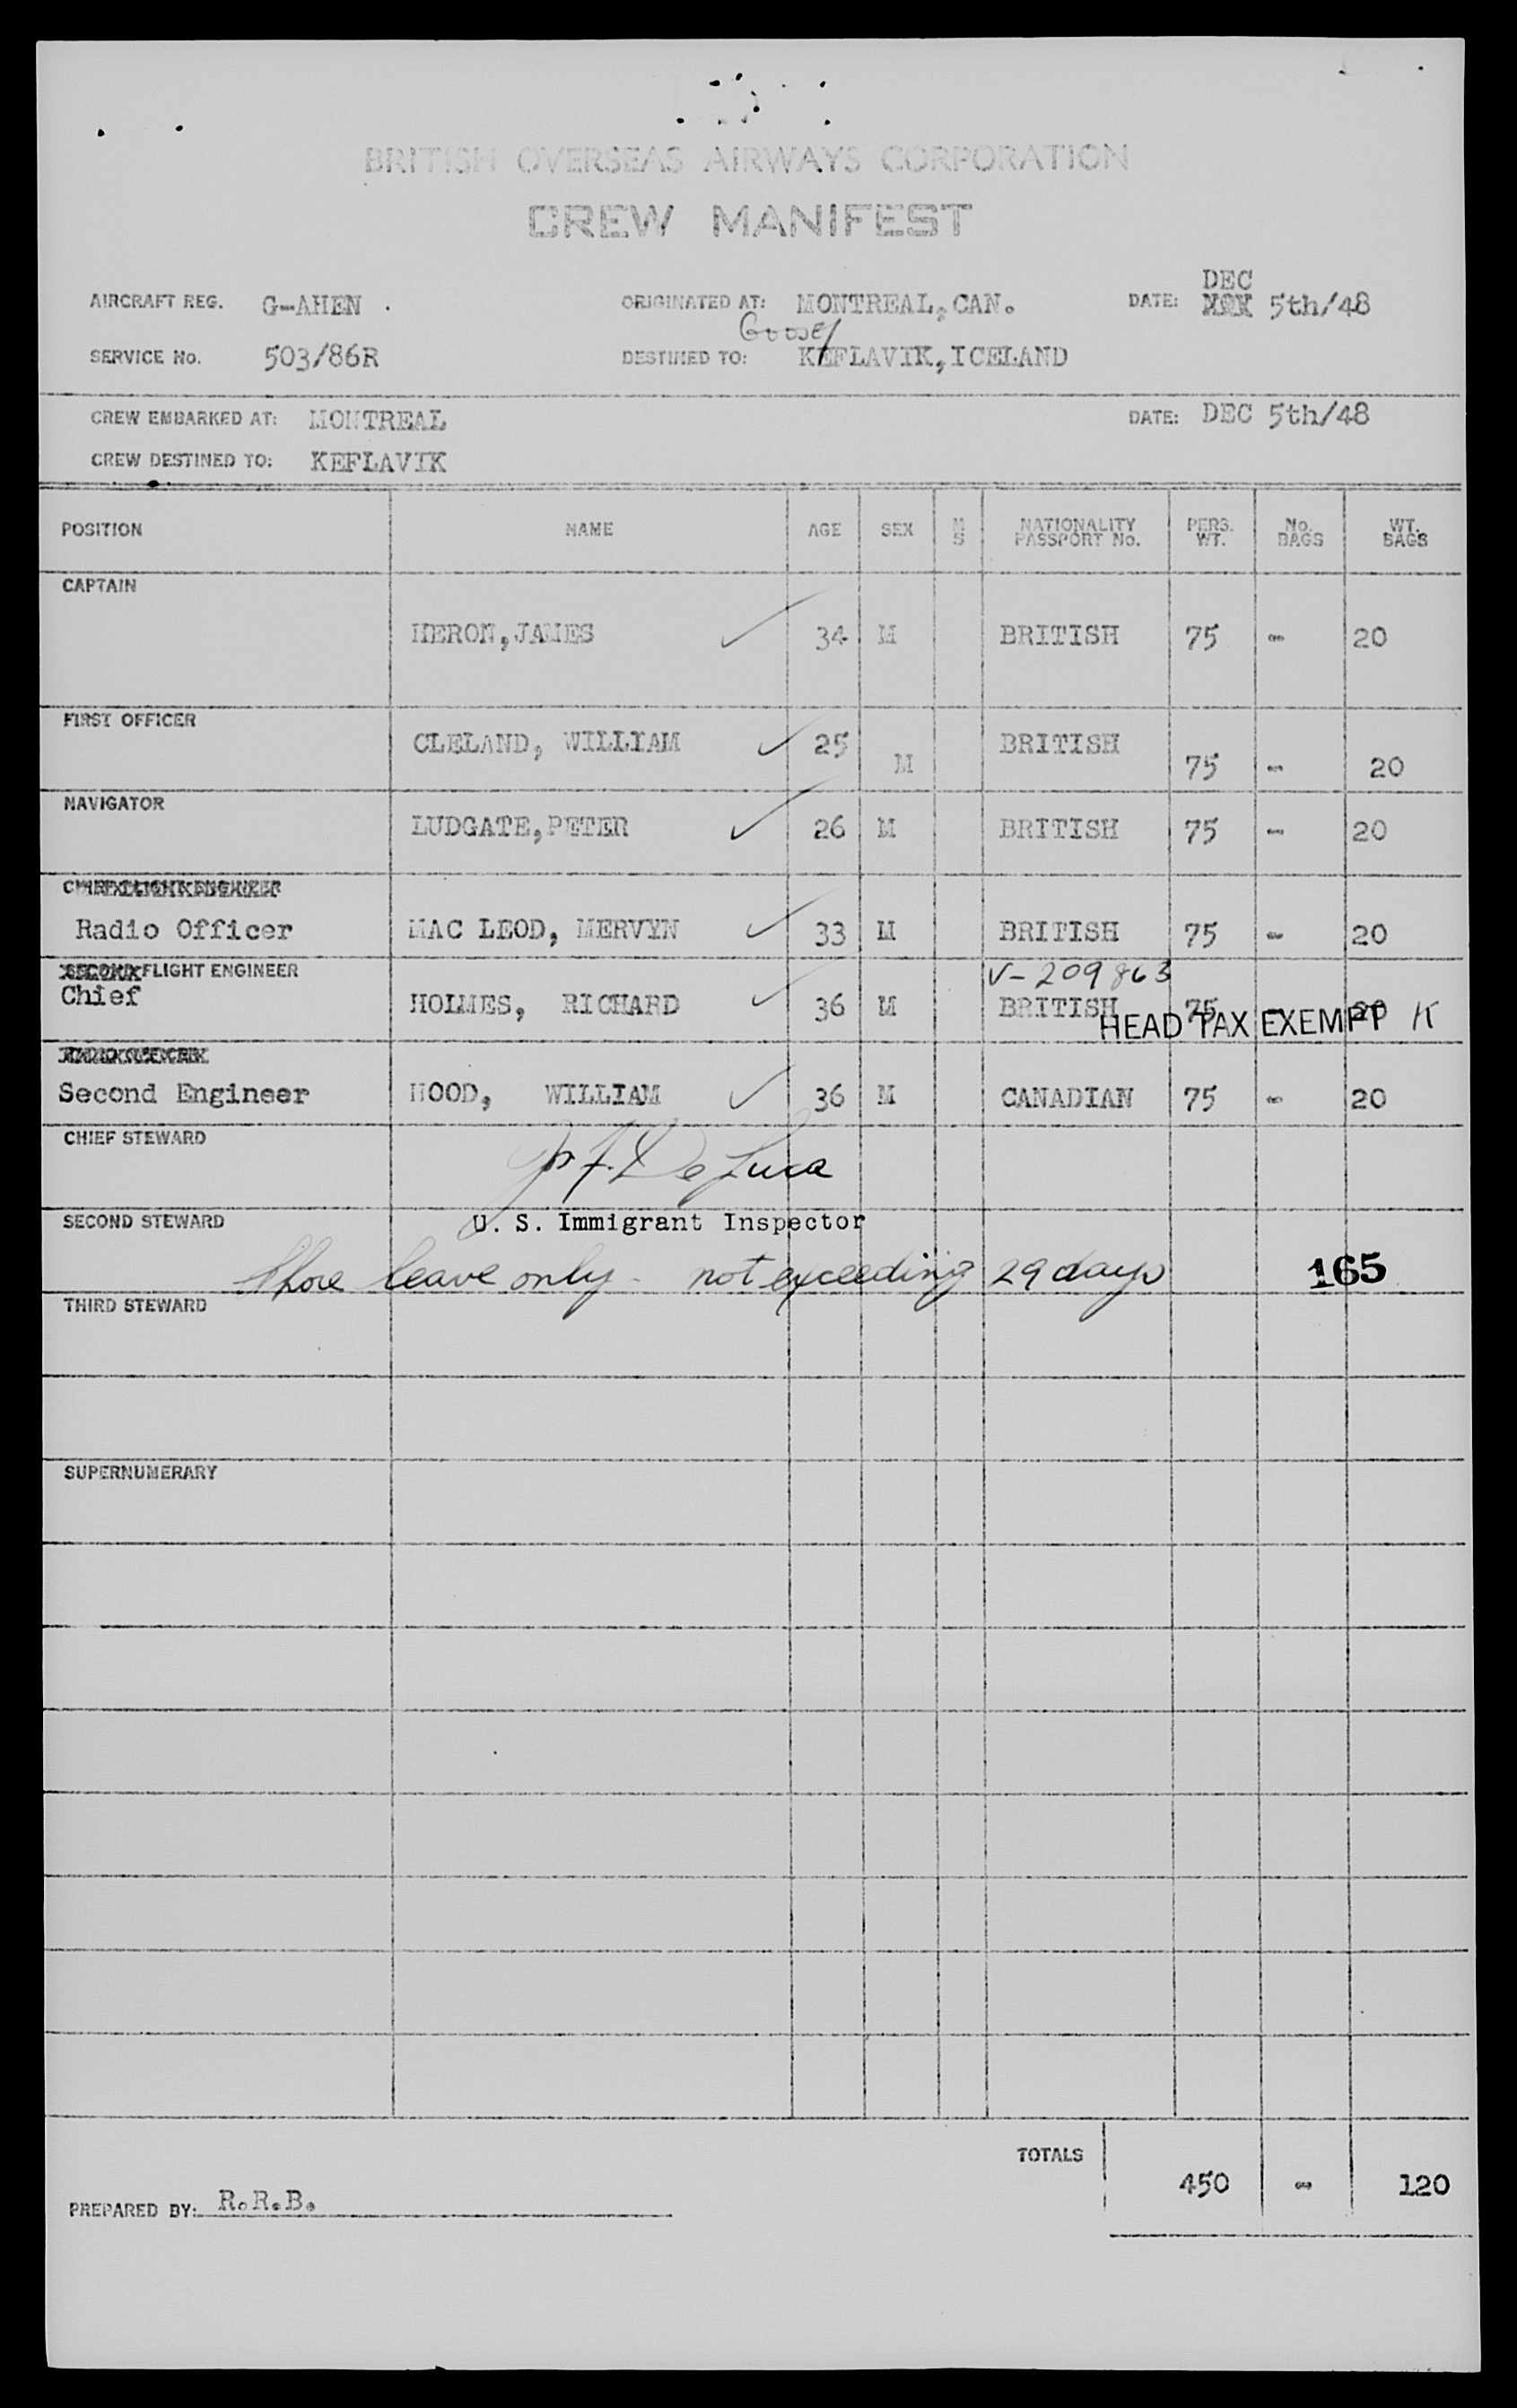 BRITISH OVERSEAS AIRWAYS CORPORATION
CREW MANIFEST
AIRCRAFT REG. G-AHEN . ORIGINATED AT: MONTREAL, CAN. DATE: DEC 5th/48
Goose/
SERVICE No. 503/86R DESTINED TO: KEFLAVIK, ICELAND
CREW EMBARKED AT: MONTREAL DATE: DEC 5th/48
CREW DESTINED TO: KEFLAVIK
POSITION NAME AGE SEX M S NATIONALITY PASSPORT No. PERS. WT. No. BAGS WT. BAGS
CAPTAIN
HERON, JAMES ✓ 34 M BRITISH 75 - 20
FIRST OFFICER
CLELAND, WILLIAM ✓ 25 M BRITISH 75 - 20
NAVIGATOR
LUDGATE, PETER ✓ 26 M BRITISH 75 - 20
CHIEF FLIGHT ENGINEER
Radio Officer MAC LEOD, MERVYN ✓ 33 M BRITISH 75 - 20
SECOND FLIGHT ENGINEER V-209863
Chief HOLMES, RICHARD ✓ 36 M BRITISH 75 - 20
HEAD TAX EXEMPT K
RADIO OFFICER
Second Engineer HOOD, WILLIAM ✓ 36 M CANADIAN 75 - 20
CHIEF STEWARD
De Luca
SECOND STEWARD U. S. Immigrant Inspector
Shore leave only - not exceeding 29 days 165
THIRD STEWARD
SUPERNUMERARY
TOTALS
450 - 120
PREPARED BY: R.R.B.